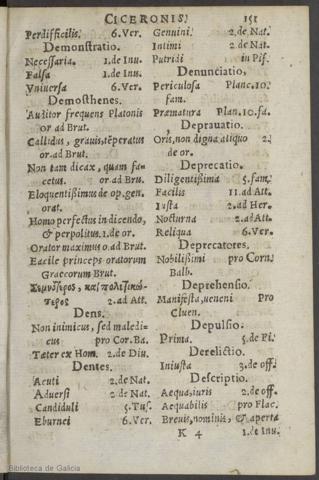 CICERONIS. 151
Perdifficilis. 6.Ver.
Demonstratio.
Necessaria. 1.de Inu.
Falsa 1.de Inu.
Vniuersa 6.Ver.
Demosthenes.
Auditor frequens Platonis
or ad Brut.
Callidus, grauis,tẽperatus
or.ad Brut.
Non tam dicax, quam fa-
cetus. or.ad Bru.
Eloquentißimus de op.gen.
orat.
Homo perfectus in dicendo,
& perpolitus.1.de or.
Orator maximus o.ad Brut.
Facile princeps oratorum
Graecorum Brut.
τερος 2.ad Att.
Dens.
Non inimicus, sed maledi-
cus pro Cor.Ba.
Tæter ex Hom. 2.de Diu.
Dentes.
Acuti 2.de Nat.
Aduersi 2.de Nat.
Candiduli 5.Tus.
Eburnei 6.Ver.
Genuini. 2.de Nat.
Intimi 2.de Nat.
Putridi in Pis.
Denunciatio.
Periculosa Planc.10.
fam.
Præmatura Plan.10.fa.
Deprauatio.
Oris,non digna aliquo 2.
de or.
Deprecatio.
Diligentißima 5.fam.
Facilis 11.ad Att.
Iusta 2.ad Her.
Nocturna 2.ad Att.
Reliqua 6.Ver.
Deprecatores.
Nobilißimi pro Corn.
Balb.
Deprehensio.
Manifesta,ueneni pro
Cluen.
Depulsio.
Prima. 5.de Fi.
Derelictio.
Iniusta 3.de off.
Descriptio.
Aequa,iuris 2.de off.
Aequabilis pro Flac.
Breuis,nominis, & aperta
K 4 1.de Inu.
Biblioteca de Galicia